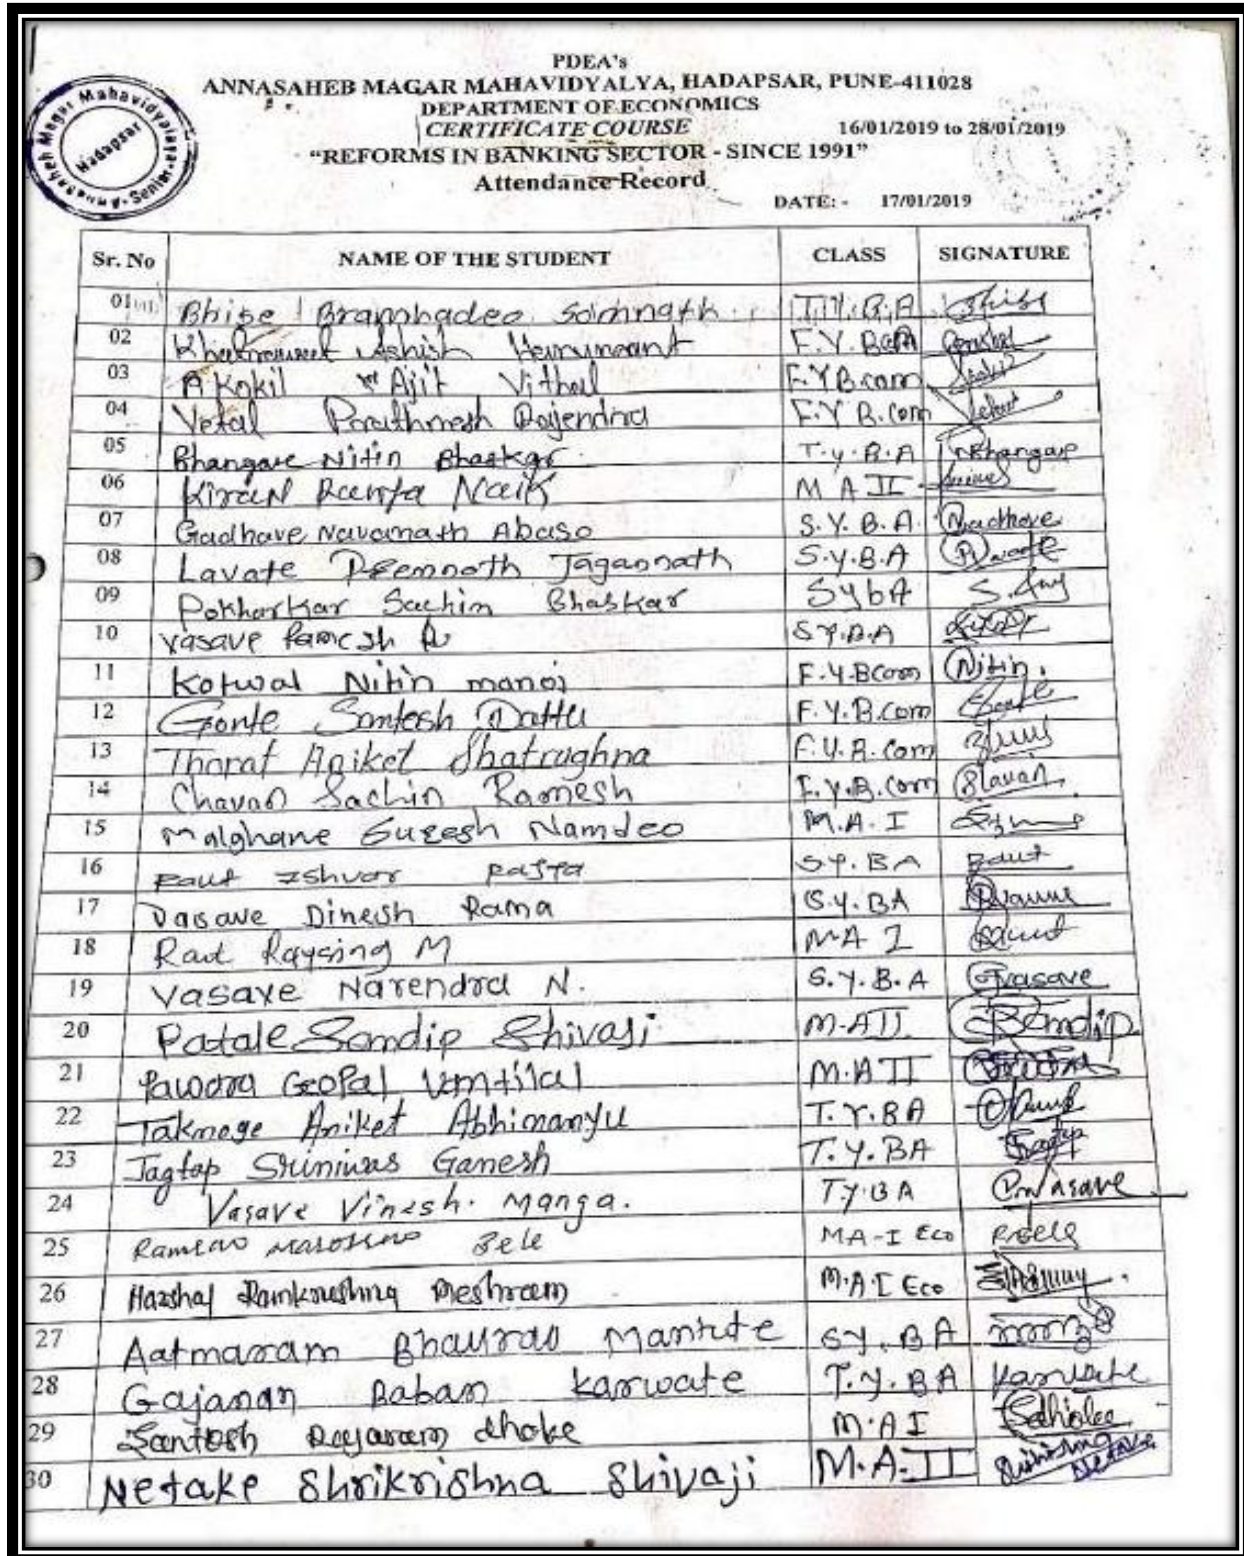 PDEA's
ANNASAHEB MAGAR MAHAVIDYALYA, HADAPSAR, PUNE-411028
DEPARTMENT OF ECONOMICS
CERTIFICATE COURSE 16/01/2019 to 28/01/2019
"REFORMS IN BANKING SECTOR - SINCE 1991"
Attendance Record
DATE: - 17/01/2019
Annasaheb Magar Mahavidyalaya Senior Hadapsar
Sr. No NAME OF THE STUDENT CLASS SIGNATURE
01 Bhise Bramhadeo Somnath T.Y.B.A Bhise
02 Ashish F.Y.
03 Kokil Ajit Vithal F.Y B.com
04 Vetal Prathmesh Rajendra F.Y B.com Vetal
05 Bhangare Nitin Bhaskar T.y.B.A Bhangare
06 Kiran Naik M A II
07 Gadhave Navanath Abaso S.Y.B.A. Gadhave
08 Lavate Premnath Jagannath S.y.B.A
09 Pokharkar Sachin Bhaskar SybA
10 Vasave Ramesh R S Y.B.A
11 Kotwal Nitin manoj F.Y-Bcom Nitin.
12 Gonte Santosh Dattu F.Y.B.com
13 Thorat Aniket Shatrughna F.Y.B.com
14 Chavan Sachin Ramesh F.Y.B.com Chavan
15 Malghane Suresh Namdeo M.A.I
16 Raut Ishvar SY.BA Raut
17 Vasave Dinesh Rama S.Y.BA
18 Raut Raysing M M.A I
19 Vasave Narendra N. S.Y.B.A Vasave
20 Patale Sandip Shivaji M.A II Sandip
21 Pawara Gopal M.A II
22 Takmoge Aniket Abhimanyu T.Y.BA
23 Jagtap Srinivas Ganesh T.Y.BA Jagtap
24 Vasave Vinesh. Manga. T.Y.BA Vasave
25 Bele MA-I Eco RBele
26 Harshal Ramkrushna Meshram M.A I Eco
27 Aatmaram Bhaurao Mantute SY.BA
28 Gajanan Baban Karwate T.Y.BA Karwate
29 Santosh Rajaram dhoke M.A I
30 Netake Shrikrishna Shivaji M.A.II Netake